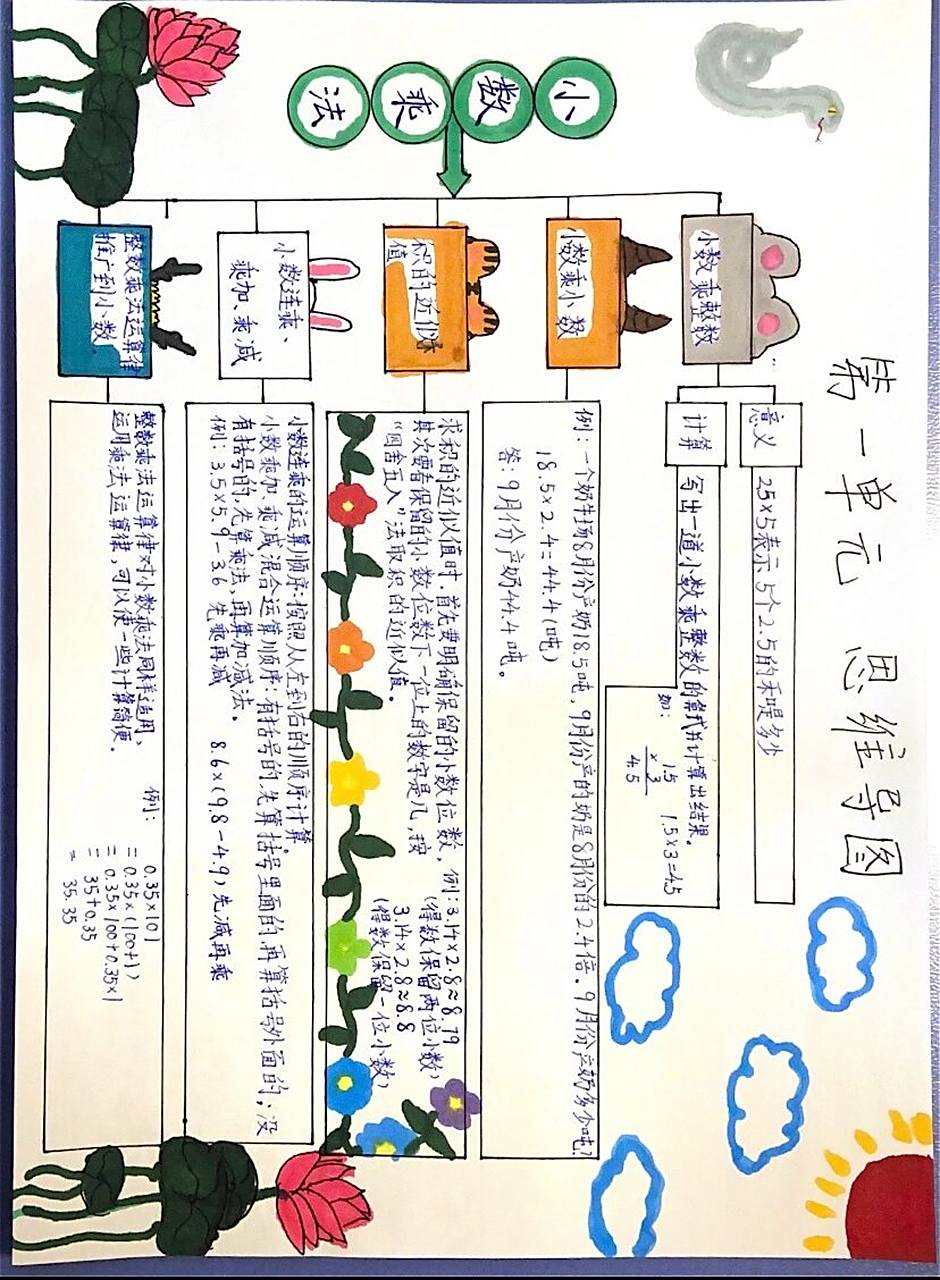 第一单元 思维导图
小数乘法
小数乘整数
意义
25×5表示5个2.5的和是多少
计算
写出一道小数乘整数的算式并计算出结果。
如：
1.5
× 3
4.5
1.5×3=4.5
小数乘小数
例：一个奶牛场8月份产奶18.5吨，9月份产的奶是8月份的2.4倍。9月份产奶多少吨？
18.5×2.4=44.4(吨)
答：9月份产奶44.4吨。
积的近似
值
求积的近似值时，首先要明确保留的小数位数，
其次要看保留的小数位数下一位上的数字是几，按
“四舍五入”法取积的近似值。
例：3.14×2.8≈8.79
(得数保留两位小数)
3.14×2.8≈8.8
(得数保留一位小数)
小数连乘、
乘加、乘减
小数连乘的运算顺序：按照从左到右的顺序计算。
小数乘加、乘减混合运算顺序：有括号的，先算括号里面的，再算括号外面的，没
有括号的，先算乘法，再算加减法。
例：3.5×5.9-3.6 先乘再减 8.6×(9.8-4.9)先减再乘
整数乘法运算律
推广到小数
整数乘法运算律对小数乘法同样适用，
运用乘法运算律，可以使一些计算简便。
例：
0.35×101
=0.35×(100+1)
=0.35×100+0.35×1
=35+0.35
=35.35